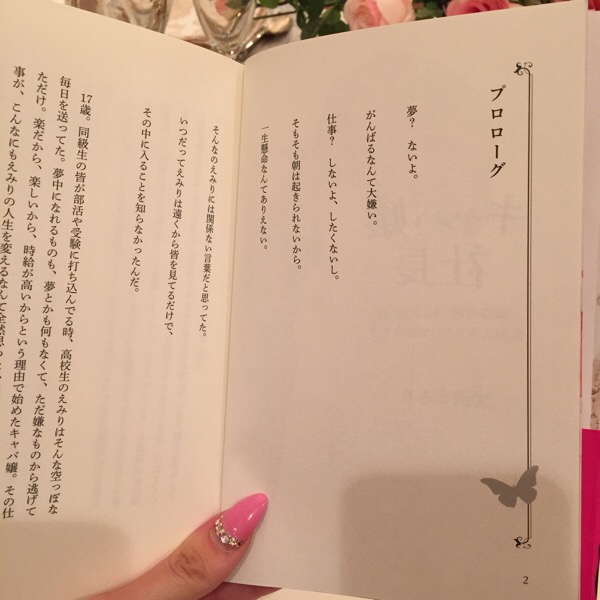 プロローグ
夢？　ないよ。
がんばるなんて大嫌い。
仕事？　しないよ、したくないし。
そもそも朝は起きられないから。
一生懸命なんてありえない。
そんなのえみりには関係ない言葉だと思ってた。
いつだってえみりは遠くから皆を見てるだけで、
その中に入ることを知らなかったんだ。
17歳。同級生の皆が部活や受験に打ち込んでる時、高校生のえみりはそんな空っぽな
毎日を送ってた。夢中になれるものも、夢とかも何もなくて、ただ嫌なものから逃げて
ただけ。楽だから、楽しいから、時給が高いからという理由で始めたキャバ嬢。その仕
事が、こんなにもえみりの人生を変えるなんて全然思っ
2